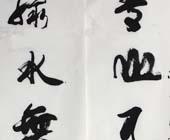 青山不
綠水無